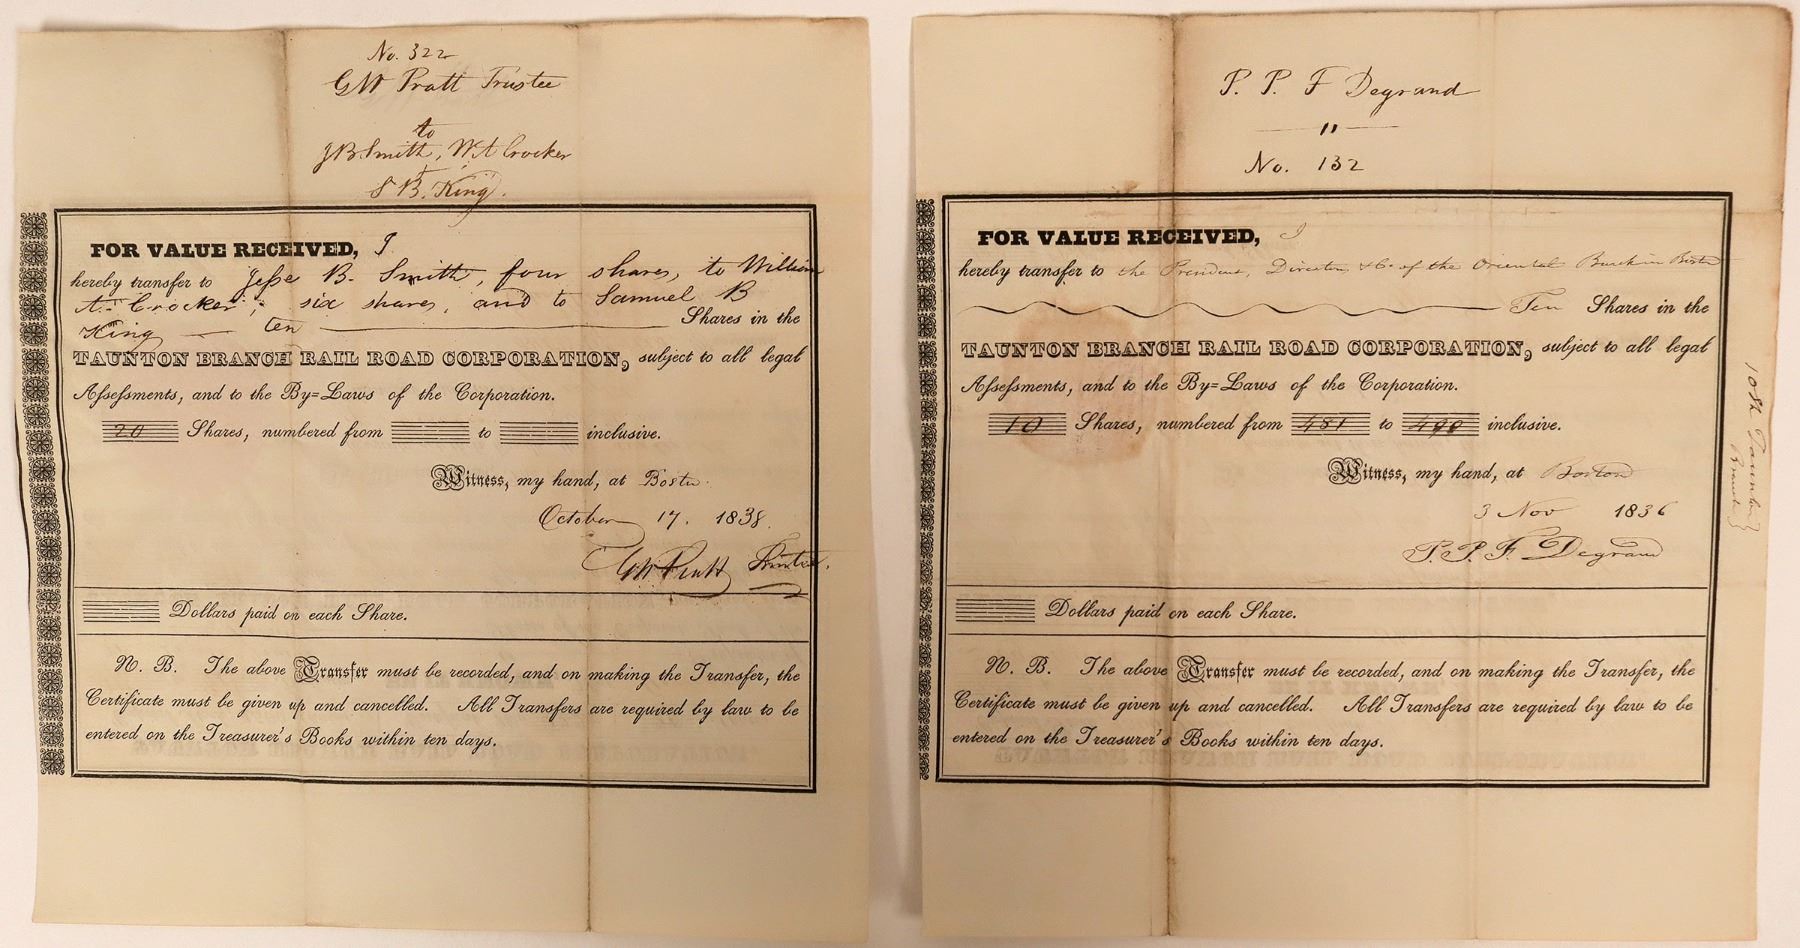 No. 322
GW Pratt Trustee
to
JB Smith, WA Crocker
S B. King.
FOR VALUE RECEIVED, I
hereby transfer to Jesse B. Smith, four shares, to William
A. Crocker, six shares, and to Samuel B
King — ten Shares in the
TAUNTON BRANCH RAIL ROAD CORPORATION, subject to all legal
Assessments, and to the By=Laws of the Corporation.
20 Shares, numbered from to inclusive.
Witness, my hand, at Boston.
October 17. 1838.
GW Pratt Trustee.
Dollars paid on each Share.
N. B. The above Transfer must be recorded, and on making the Transfer, the
Certificate must be given up and cancelled. All Transfers are required by law to be
entered on the Treasurer's Books within ten days.
P. P. F Degrand
"
No. 132
FOR VALUE RECEIVED, I
hereby transfer to the President, Directors &c. of the Oriental Bank in Boston
Ten Shares in the
TAUNTON BRANCH RAIL ROAD CORPORATION, subject to all legal
Assessments, and to the By=Laws of the Corporation.
10 Shares, numbered from 481 to 490 inclusive.
Witness, my hand, at Boston
3 Nov 1836
P. P. F. Degrand
Dollars paid on each Share.
N. B. The above Transfer must be recorded, and on making the Transfer, the
Certificate must be given up and cancelled. All Transfers are required by law to be
entered on the Treasurer's Books within ten days.
10 Sh Taunton
Branch